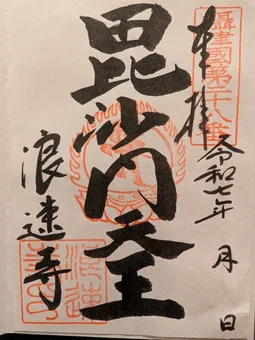 奉拝
令和七年 月 日
攝津國第二十八番
毘沙門天王
浪速寺